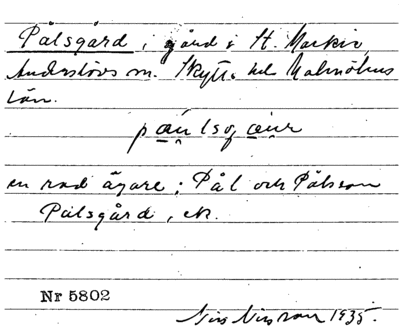 Pålsgård, i gård i St. Markie,
Anderslövs sn. Skytts hd Malmöhus
län.
en rad ägare: Pål och Pålsson
Pålsgård, ek.
Nr 5802
Nils Nilsson 1935.